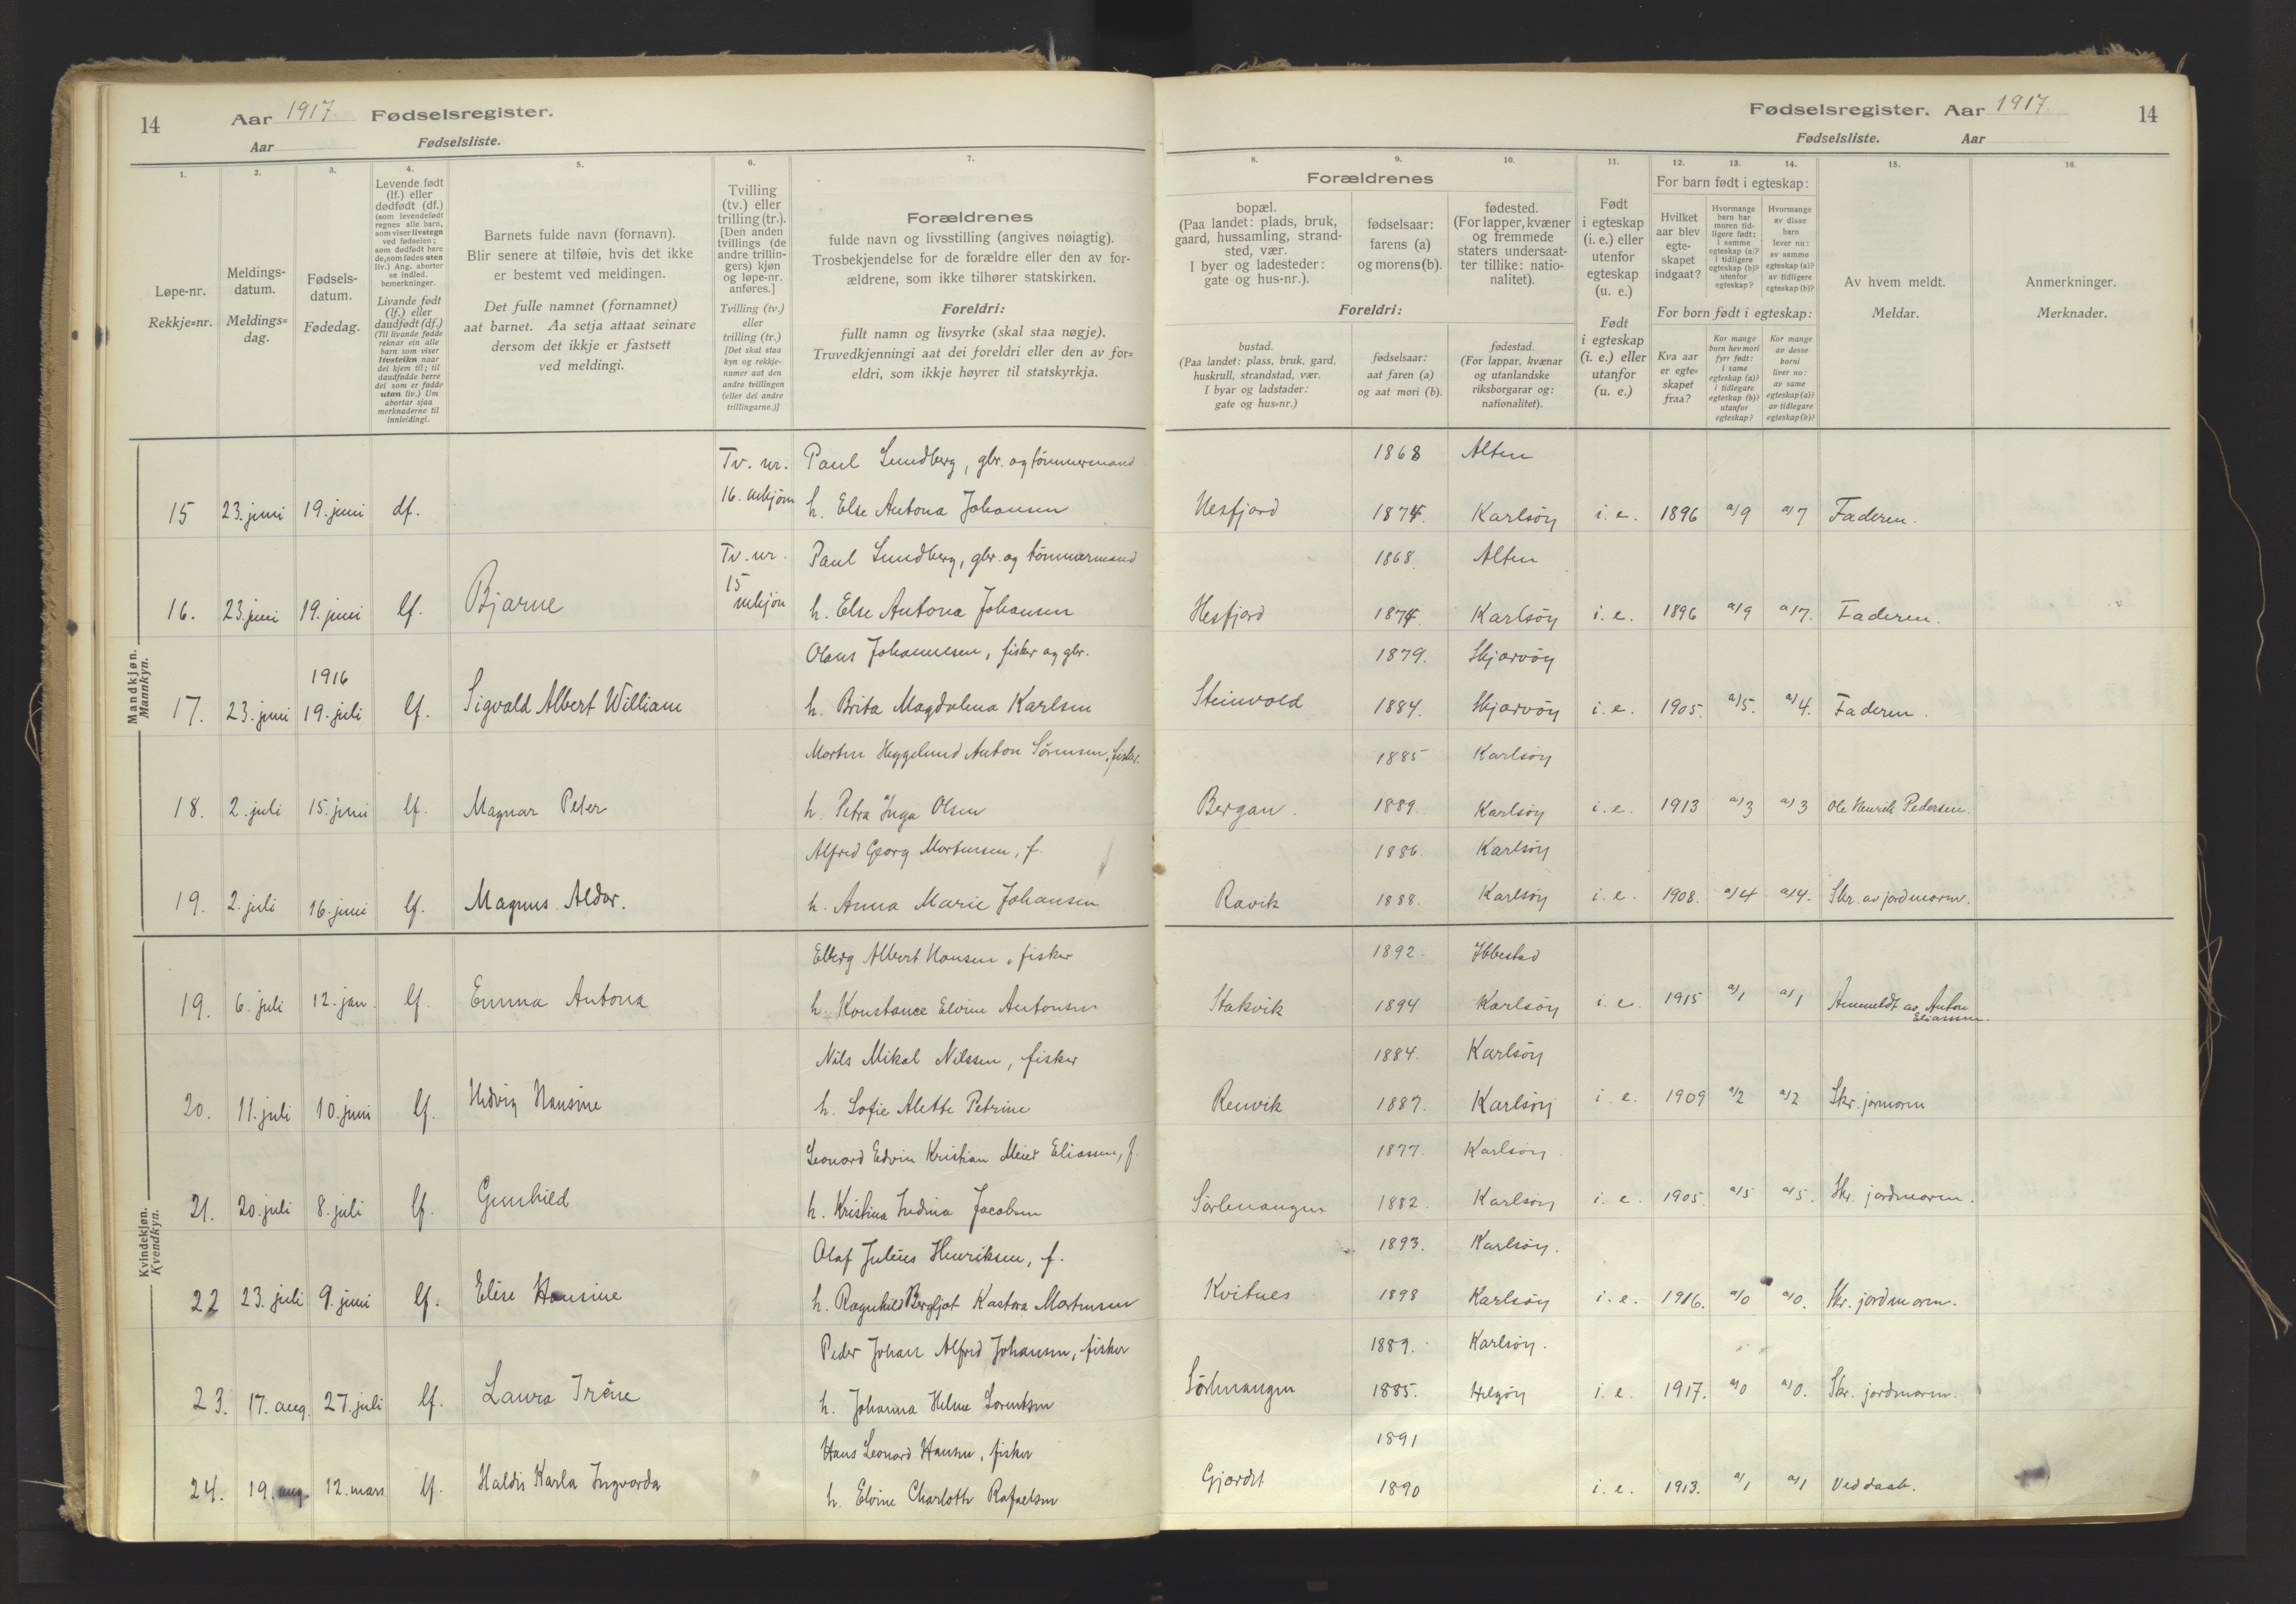 14
Aar 1917. Fødselsregister.
Aar
Fødselsliste.
1.
2.
3.
4.
5.
6.
7.
Løpe-nr.
Rekkje=nr.
Meldings-
datum.
Meldings=
dag.
Fødsels-
datum.
Fødedag.
Levende født
(lf.) eller
dødfødt (df.)
(som levendefødt
regnes alle barn,
som viser livstegn
ved fødselen;
som dødfødt bare
de, som fødes uten
liv.) Ang. aborter
se indled.
bemerkninger.
Livande født
(lf.) eller
daudfødt (df.)
(Til livande fødde
reknar ein alle
barn som viser
livsteikn naar
dei kjem til; til
daudfødde berre
dei som er fødde
utan liv.) Um
abortar sjaa
merknaderne til
innleidingi.
Barnets fulde navn (fornavn).
Blir senere at tilføie, hvis det ikke
er bestemt ved meldingen.
Det fulle namnet (fornamnet)
aat barnet. Aa setja attaat seinare
dersom det ikkje er fastsett
ved meldingi.
Tvilling
(tv.) eller
trilling (tr.).
[Den anden
tvillings (de
andre trillin-
gers) kjøn
og løpe-nr.
anføres.]
Tvilling (tv.)
eller
trilling (tr.)
[Det skal staa
kyn og rekkje-
numer aat den
andre tvillingen
(eller dei andre
trillingarne.)]
Forældrenes
fulde navn og livsstilling (angives nøiagtig).
Trosbekjendelse for de forældre eller den av for-
ældrene, som ikke tilhører statskirken.
Foreldri:
fullt namn og livsyrke (skal staa nøgje).
Truvedkjenningi aat dei foreldri eller den av for=
eldri, som ikkje høyrer til statskyrkja.
Fødselsregister. Aar 1917.
14
Fødselsliste.
Aar
8.
9.
10.
11.
12.
13.
14.
15.
16.
Forældrenes
bopæl.
(Paa landet: plads, bruk,
gaard, hussamling, strand-
sted, vær.
I byer og ladesteder:
gate og hus-nr.).
fødselsaar:
farens (a)
og morens (b).
fødested.
(For lapper, kvæner
og fremmede
staters undersaat-
ter tillike: natio-
nalitet).
Foreldri:
bustad.
(Paa landet: plass, bruk, gard,
huskrull, strandstad, vær.
I byar og ladstader:
gate og hus=nr.)
fødselsaar:
aat faren (a)
og aat mori (b).
fødestad.
(For lappar, kvænar
og utanlandske
riksborgarar og:
nationalitet).
Født
i egteskap
(i. e.) eller
utenfor
egteskap
(u. e.)
Født
i egteskap
(i. e.) eller
utanfor
(u. e.)
For barn født i egteskap:
Hvilket
aar blev
egte-
skapet
indgaat?
Hvormange
barn har
moren tid-
ligere født:
i samme
egteskap (a)?
i tidligere
egteskap (b)?
utenfor
egteskap?
Hvormange
av disse
barn
lever nu:
av samme
egteskap (a)?
av tidligere
egteskap (b)?
For born født i egteskap:
Kva aar
er egte=
skapet
fraa?
Kor mange
born hev mori
fyrr født:
i same
egteskap (a)?
i tidlegare
egteskap (b)?
utanfor
egteskap?
Kor mange
av desse
borni
liver no:
av same
egteskap (a)?
av tidlegare
egteskap (b)?
Av hvem meldt.
Meldar.
Anmerkninger.
Merknader.
Mandkjøn.
Mannkyn.
Tv. nr. Paul Lundberg, gbr. og tømmermand 1868 Alten
15 23. juni 19. juni df. 16. mkjøn h. Else Antona Johansen Hesfjord 1874. Karlsöy i. e. 1896 a/9 a/7 Faderen.
Tv. nr. Paul Lundberg, gbr. og tømmermand 1868. Alten
16. 23 juni 19. juni lf. Bjarne 15 mkjøn h. Else Antona Johansen Hesfjord 1874. Karlsöy i. e. 1896 a/9 a/7. Faderen.
1916 Olaus Johannesen, fisker og gbr. 1879. Skjærvöy
17. 23. juni 19. juli lf. Sigvald Albert William h. Brita Magdalena Karlsen Steinvold 1884. Skjærvöy i. e. 1905. a/5. a/4. Faderen.
Morten Heggelund Anton Sörensen, fisker. 1885 Karlsöy
18. 2. juli 15. juni lf. Magnar Peter h. Petra Inga Olsen Bergan. 1889. Karlsöy i. e. 1913 a/3 a/3 Ole Henrik Pedersen.
Alfred Georg Mortensen, f. 1886. Karlsöy
19. 2. juli 16. juni lf. Magnus Aldor. h. Anna Marie Johansen Ravik 1888. Karlsöy i. e. 1908. a/4 a/4. Skr. av jordmoren.
Kvindekjøn.
Kvendkyn.
Albert Hansen, fisker 1892. Ibbestad
19. 6. juli 12. jan. lf. Emma Antona h. Konstance Elvine Antonsen Stakvik 1894 Karlsöy i. e. 1915 a/1 a/1 av Anton
Eliassen.
Nils Mikal Nilssen, fisker 1884. Karlsöy
20. 11. juli 10. juni lf. Hedvig Hansine h. Sofie Alette Petrine Renvik 1887. Karlsöy i. e. 1909 a/2 a/2 Skr. jormoren
Leonard Edvin Kristian Meier Eliassen, f. 1877. Karlsöy.
21. 20. juli 8. juli lf. Gunhild h. Kristina Indina Jacobsen Sörlenangen 1882. Karlsöy i. e. 1905 a/5 a/5. Skr. jordmoren.
Olaf Julius Henriksen, f. 1893. Karlsöy.
22 23. juli 9. juni lf. Elise Hansine h. Ragnhild Bergljot Kastora Mortensen Kvitnes 1898 Karlsöy i. e. 1916. a/0 a/0. Skr. jordmoren.
Peder Johan Alfred Johansen, fisker 1889. Karlsöy.
23. 17. aug. 27. juli lf. Laura Iréne h. Johanna Helene Lorentsen Sörlenangen 1885. Helgöy i. e. 1917. a/0 a/0. Skr. jordmoren.
Hans Leonard Hansen, fisker 1891
24. 19. aug. 12. mars lf. Haldis Karla Ingvarda h. Elvine Charlotte Rafaelsen Gjæret 1890 i. e. 1913. a/1 a/1 Ved daab.